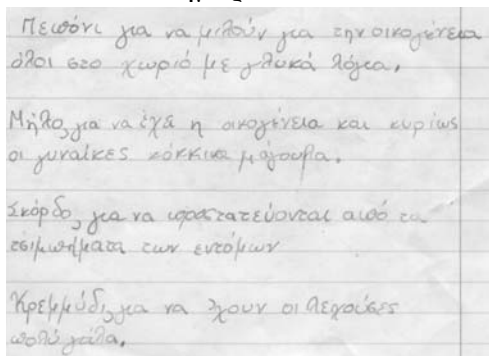 Πεπόνι για να μιλούν για την οικογένεια
όλοι στο χωριό με γλυκά λόγια.
Μήλο, για να έχει η οικογένεια και κυρίως
οι γυναίκες κόκκινα μάγουλα.
Σκόρδο, για να προστατεύονται από τα
τσιμπήματα των εντόμων
Κρεμμύδι, για να έχουν οι λεχούσες
πολύ γάλα.